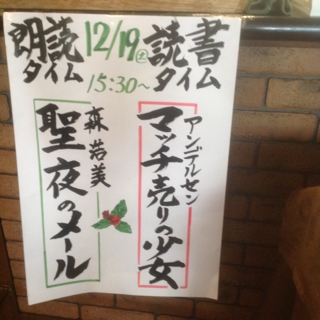 朗読タイム
12/19(土)
15:30~
読書タイム
アンデルセン
マッチ売りの少女
森浩美
聖夜のメール